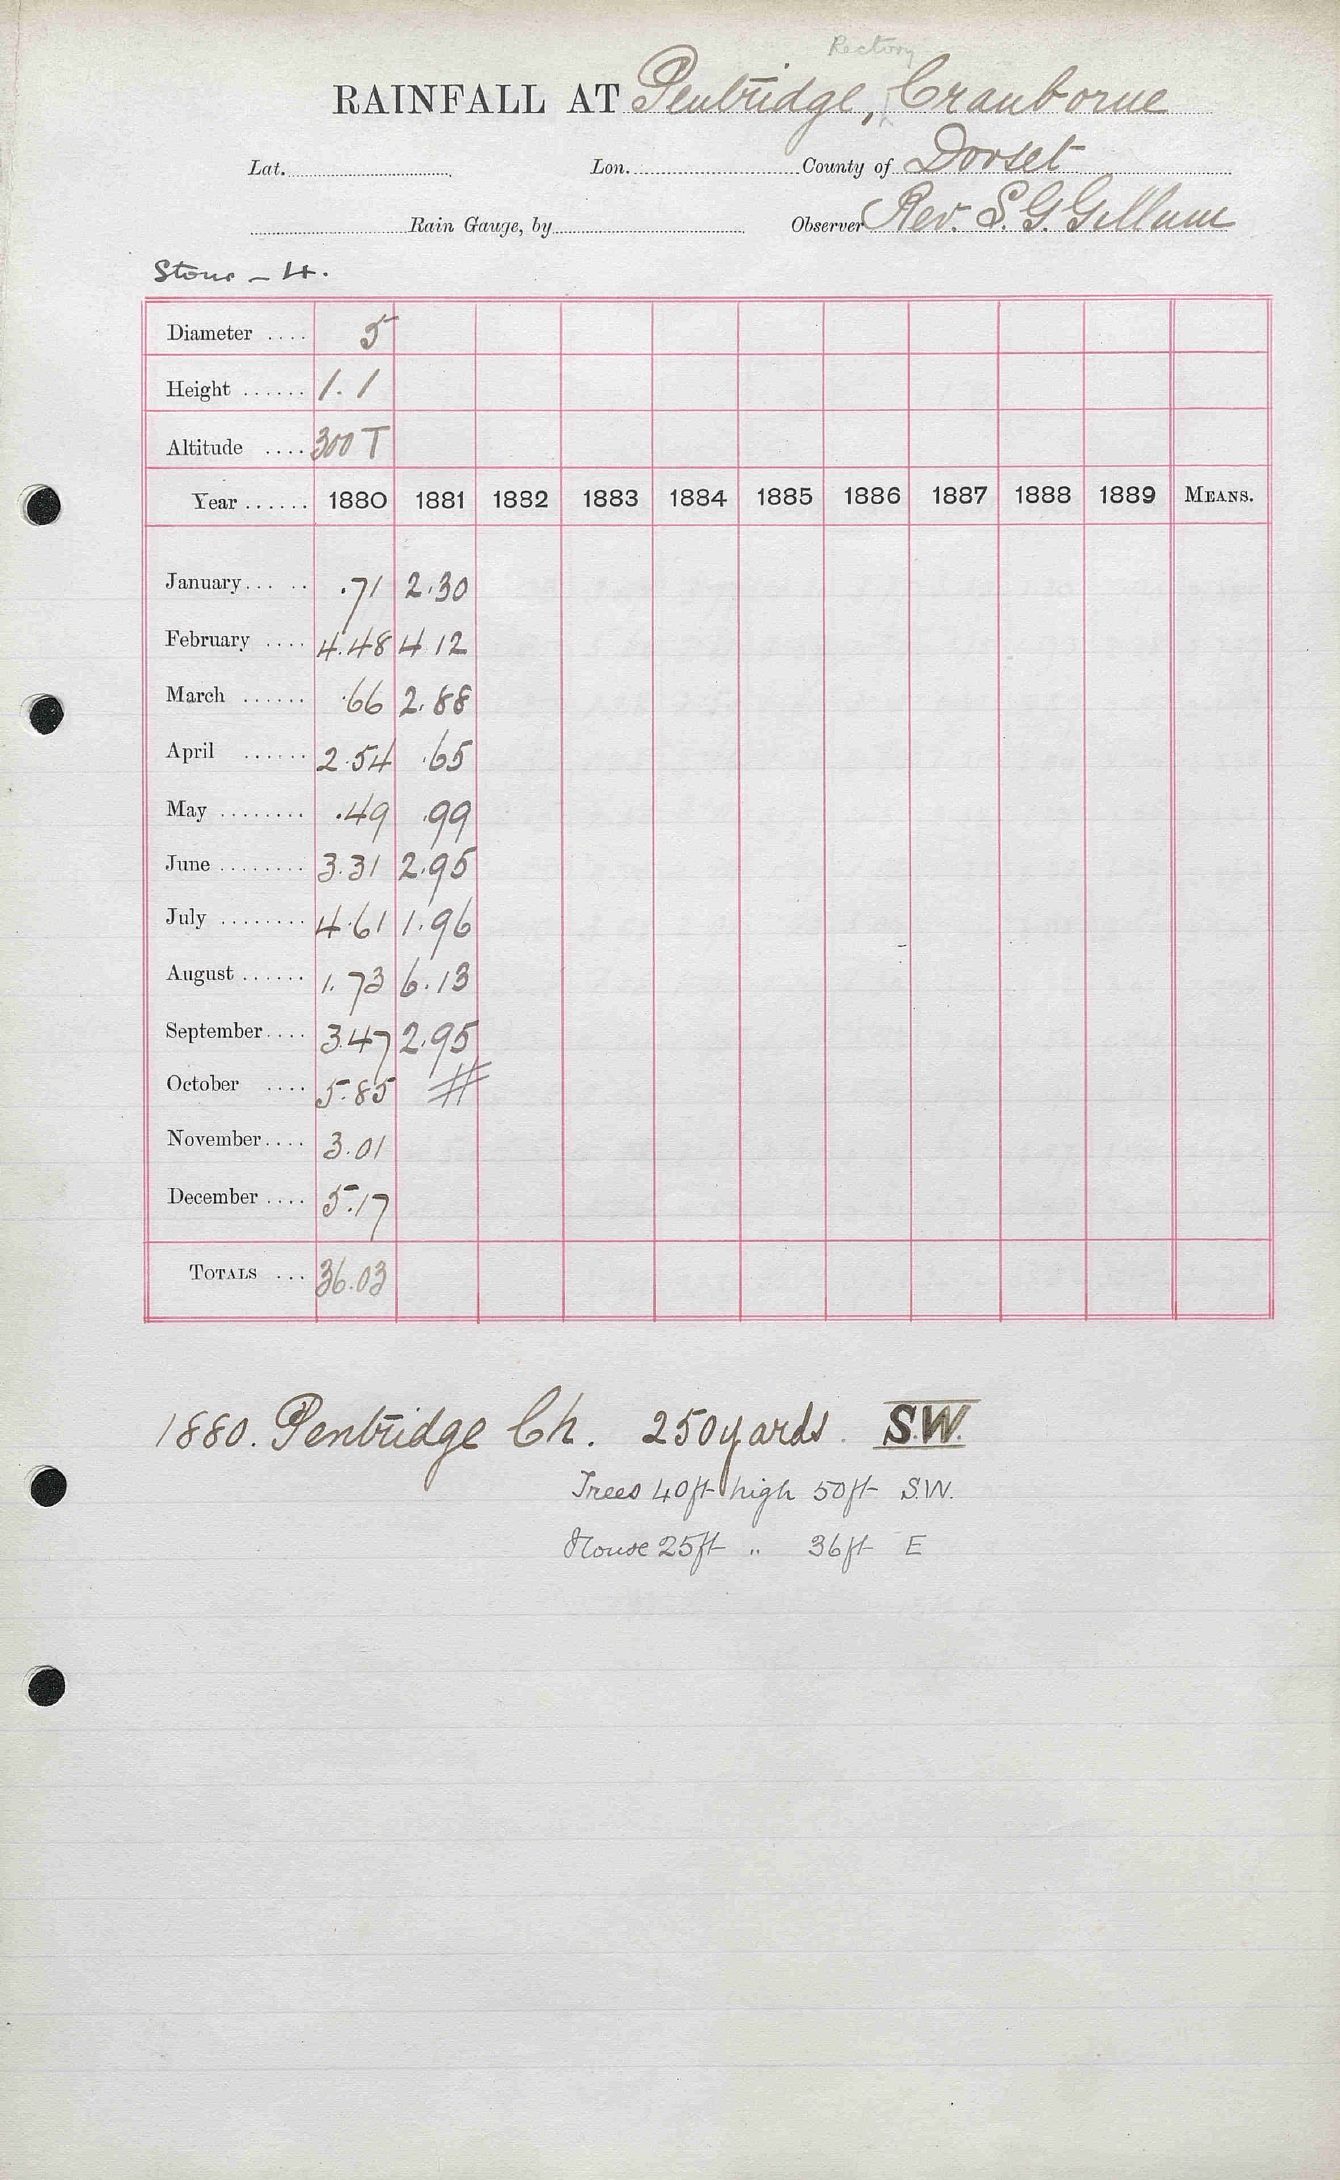 Rectory
RAINFALL AT Pentridge, Cranborne
Lat. Lon. County of Dorset
Rain Gauge, by Observer Rev. S. G. Gillum
Stour - 4.
Diameter .... 5
Height ...... 1.1
Altitude .... 300 T
Year ...... 1880 1881 1882 1883 1884 1885 1886 1887 1888 1889 MEANS.
January... .. .71 2.30
February .... 4.48 4 12
March ...... .66 2.88
April ...... 2.54 .65
May ........ .49 .99
June ........ 3.31 2.95
July ........ 4.61 1.96
August ...... 1.73 6.13
September.... 3.47 2.95
October .... 5.85 #
November.... 3.01
December .... 5.17
TOTALS ... 36.03
1880. Pentridge Ch. 250 yards. S.W.
Trees 40ft high 50ft S.W.
House 25ft " 36ft E